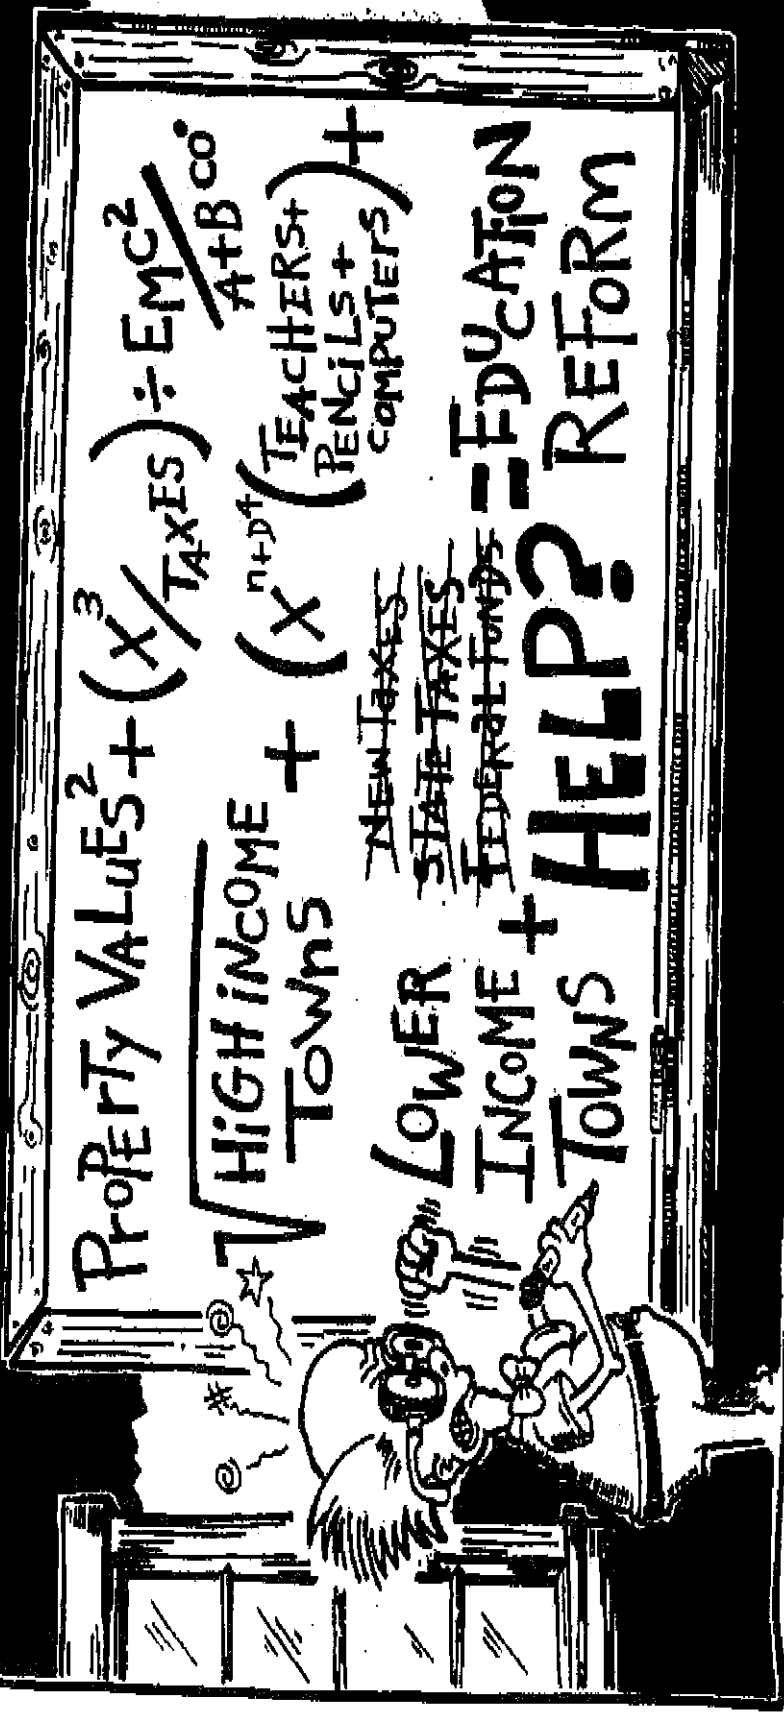 PROPERTY VALUES² + (X³/TAXES) ÷ EMC²/A+B CO°
√HIGH INCOME TOWNS + (X ⁿ⁺ᴰ⁴ (TEACHERS+ PENCILS+ COMPUTERS) +
LOWER INCOME TOWNS + NEW TAXES STATE TAXES FEDERAL FUNDS HELP? = EDUCATION REFORM